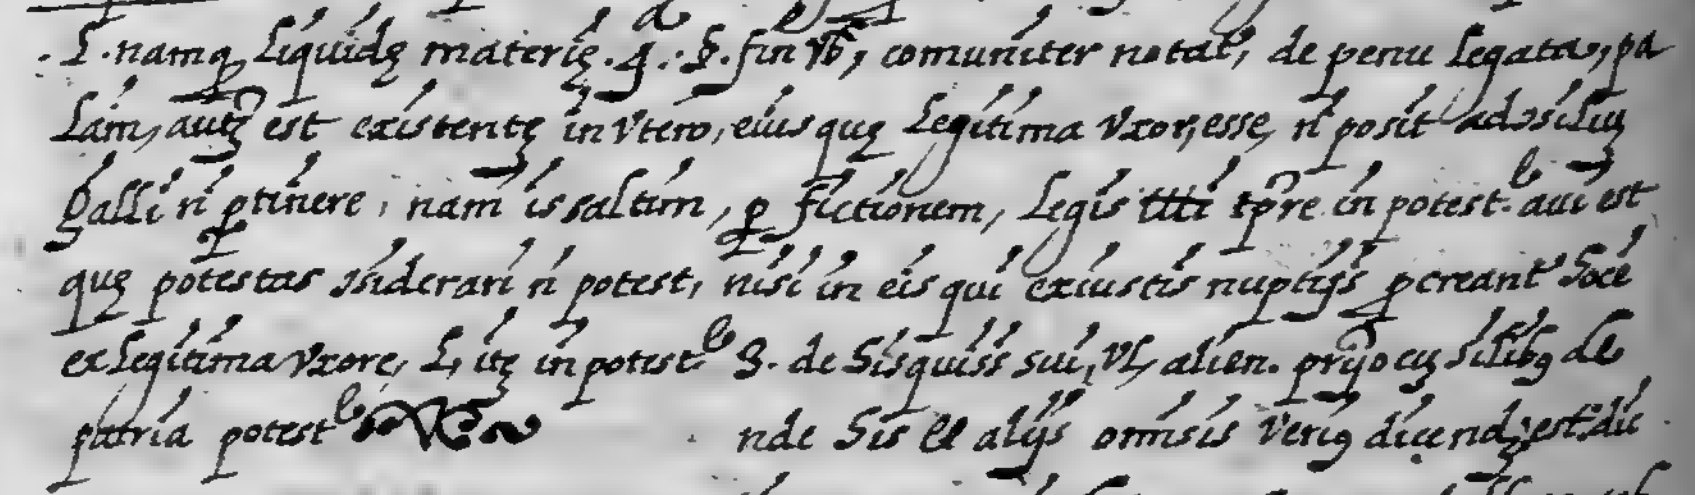 . L. namq liquidę materię. q. §. fin vb, comuniter notat, de penu legata, pa
lam, autę est existentę in vtero, eiusquę legitima vxor, esse, n posit ad
Galli n ptinere, nam is saltim, p fictionem, legis tpre in potest.e aui est
quę potestas siderari n potest, nisi in eis qui ex iustis nuptijs pcreant hoc e
ex legitima vxore, L, itę in potest.e §. de his qui sui, vl, alien. similibq de
patria poteste nde his et alijs omisis veriq dicendę est. dic